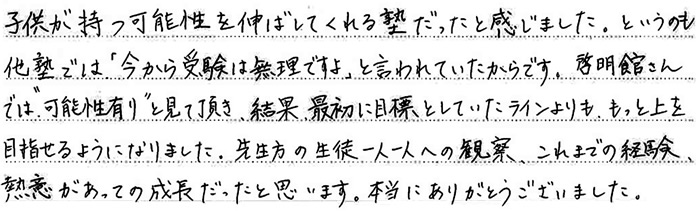 子供が持つ可能性を伸ばしてくれる塾だったと感じました。というのも
他塾では「今から受験は無理ですよ」と言われていたからです。啓明館さん
では"可能性有り"と見て頂き、結果、最初に目標としていたラインよりも、もっと上を
目指せるようになりました。先生方の生徒一人一人への観察、これまでの経験、
熱意があっての成長だったと思います。本当にありがとうございました。